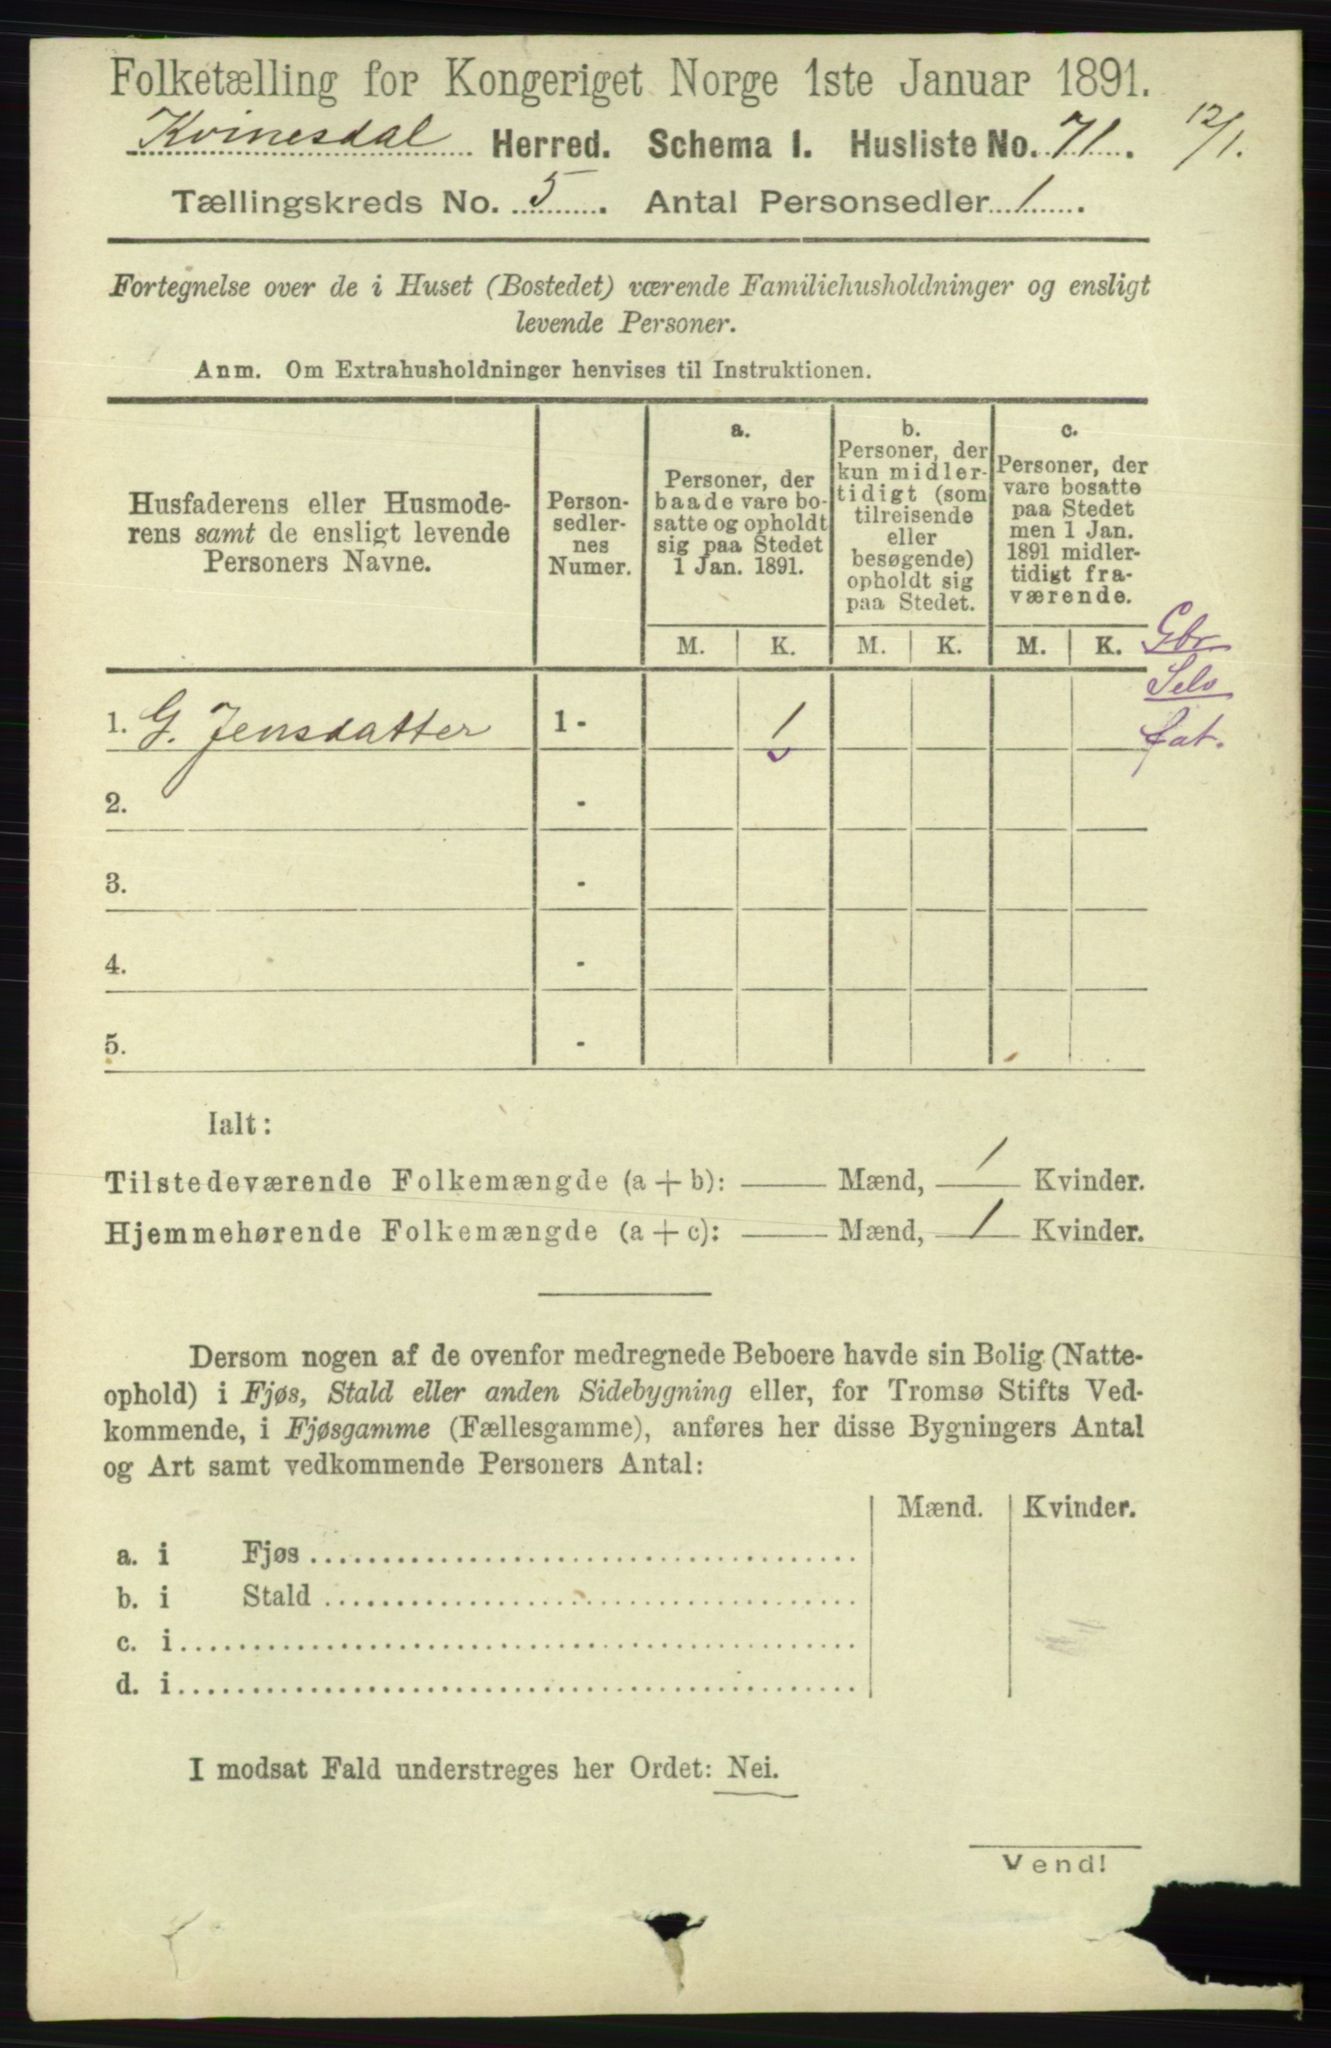 Folketælling for Kongeriget Norge 1ste Januar 1891.
Kvinesdal Herred. Schema I. Husliste No. 71. 12/1.
Tællingskreds No. 5. Antal Personsedler 1.
Fortegnelse over de i Huset (Bostedet) værende Familiehusholdninger og ensligt
levende Personer.
Anm. Om Extrahusholdninger henvises til Instruktionen.
Husfaderens eller Husmode-
rens samt de ensligt levende
Personers Navne.
Person-
sedler-
nes
Numer.
a.
Personer, der
baade vare bo-
satte og opholdt
sig paa Stedet
1 Jan. 1891.
b.
Personer, der
kun midler-
tidigt (som
tilreisende
eller
besøgende)
opholdt sig
paa Stedet.
c.
Personer, der
vare bosatte
paa Stedet
men 1 Jan.
1891 midler-
tidigt fra-
værende.
M. K. M. K. M. K. Gbr
Selv
1. G. Jensdatter 1 - 1 fat.
2. -
3. -
4. -
5. -
Ialt:
Tilstedeværende Folkemængde (a + b): Mænd, 1 Kvinder.
Hjemmehørende Folkemængde (a + c): Mænd, 1 Kvinder.
Dersom nogen af de ovenfor medregnede Beboere havde sin Bolig (Natte-
ophold) i Fjøs, Stald eller anden Sidebygning eller, for Tromsø Stifts Ved-
kommende, i Fjøsgamme (Fællesgamme), anføres her disse Bygningers Antal
og Art samt vedkommende Personers Antal:
Mænd. Kvinder.
a. i Fjøs
b. i Stald
c. i
d. i
I modsat Fald understreges her Ordet: Nei.
Vend!